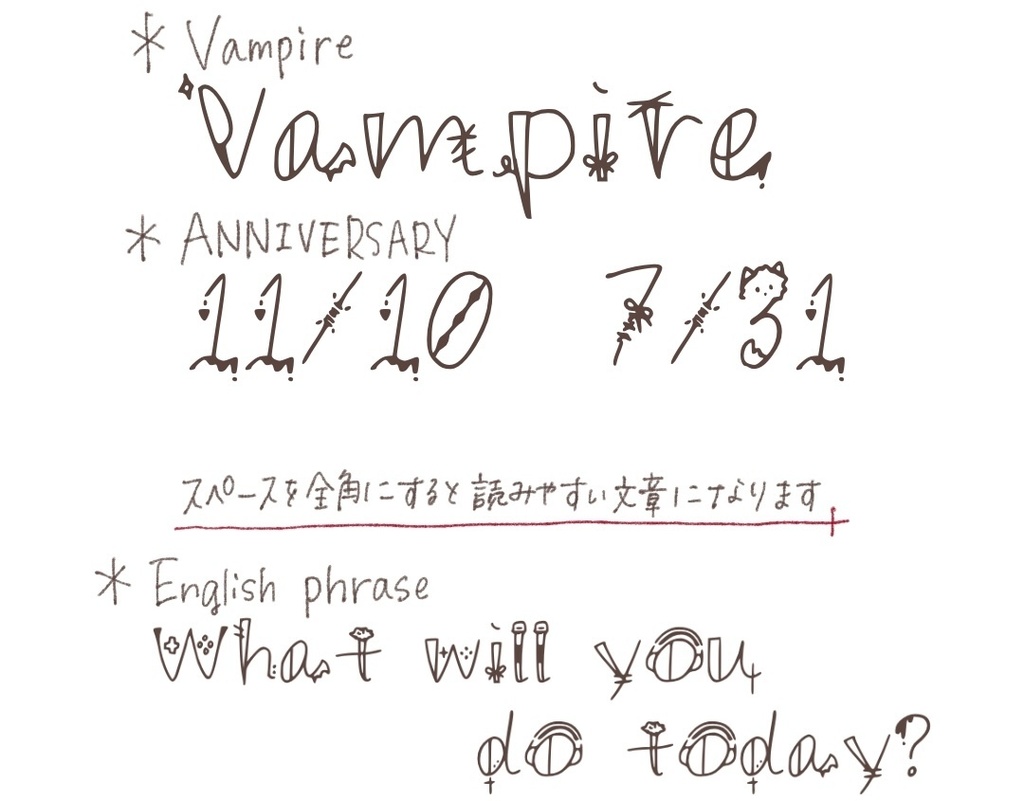 * Vampire
Vampire
* ANNIVERSARY
11/10 7/31
スペースを全角にすると読みやすい文章になります
* English phrase
What will you
do today?